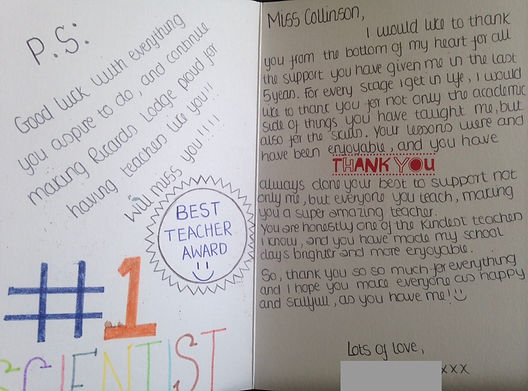 P.S:
Good luck with everything
you aspire to do, and continue
making Ricards Lodge proud for
having teachers like you!!
Will miss you!!!!
BEST
TEACHER
AWARD
#1
SCIENTIST
Miss Collinson,
I would like to thank
you from the bottom of my heart for all
the support you have given me in the last
5 years. For every stage i get in life, I would
like to thank you for not only the academic
side of things you have taught me, but
also for the skills. Your lessons were and
have been enjoyable, and you have
THANK YOU
always done your best to support not
only me, but everyone you teach, making
you a super amazing teacher.
You are honestly one of the kindest teachers
I know, and you have made my school
days brighter and more enjoyable.
So, thank you so so much for everything
and I hope you make everyone as happy
and skillfull, as you have me!
Lots of love,
xxx